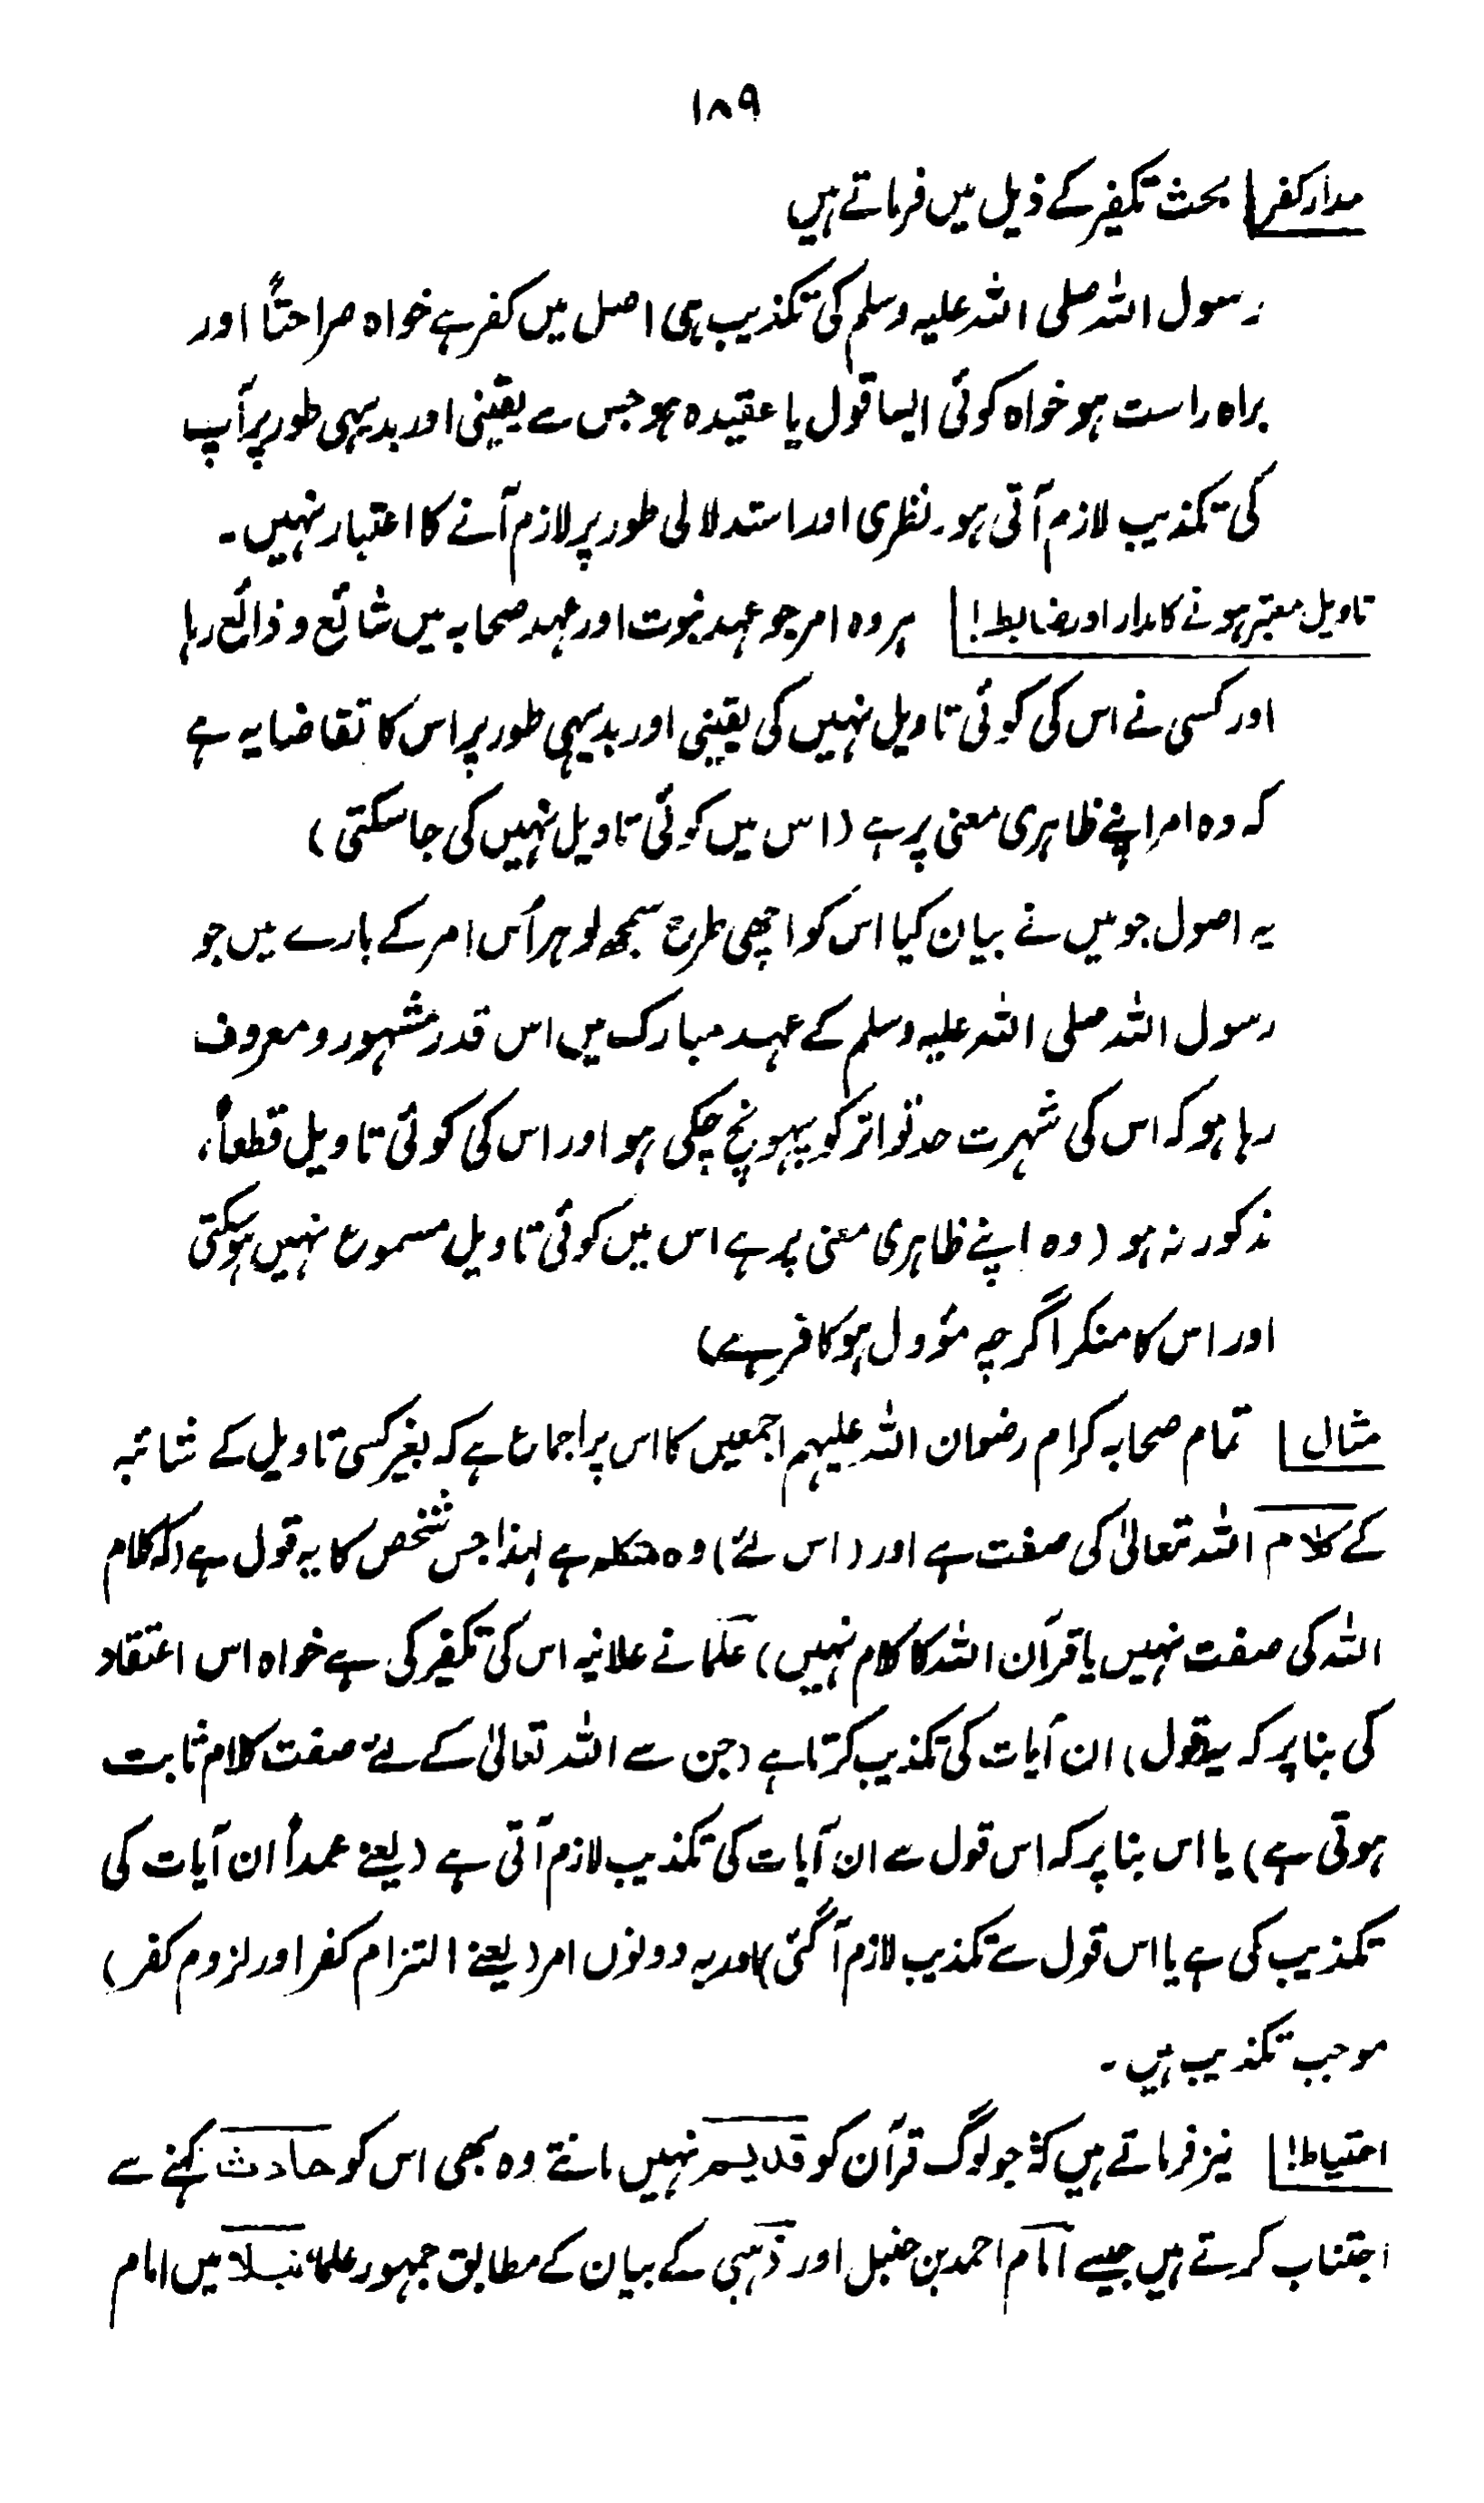 ۱۸۹
مدار کفر بحث تکفیر کے ذیل میں فرماتے ہیں
رسول اللہ صلی اللہ علیہ وسلم کی تکذیب ہی اصل میں کفر ہے خواہ صراحتاً اور
براہ راست ہو خواہ کوئی ایسا قول یا عقیدہ ہو جس سے یقینی اور بدیہی طور پر آپ
کی تکذیب لازم آتی ہو۔ نظری اور استدلالی طور پر لازم آنے کا اعتبار نہیں۔
تاویل معتبر ہونے کا مدار اور ضابطہ! ہر وہ امر جو عہد نبوت اور عہد صحابہ میں شائع و ذائع رہا
اور کسی نے اس کی کوئی تاویل نہیں کی یقینی اور بدیہی طور پر اس کا تقاضا یہ ہے
کہ وہ امر اپنے ظاہری معنی پر ہے (اس میں کوئی تاویل نہیں کی جا سکتی)
یہ اصول جو میں نے بیان کیا اس کو اچھی طرح سمجھ لو ہر اُس امر کے بارے میں جو
رسول اللہ صلی اللہ علیہ وسلم کے عہد مبارک میں اس قدر مشہور و معروف
رہا ہو کہ اس کی شہرت حد تواتر کو پہونچ چکی ہو اور اس کی کوئی تاویل قطعاً،
مذکور نہ ہو (وہ اپنے ظاہری معنی پر ہے اس میں کوئی تاویل مسموع نہیں ہو سکتی
اور اس کا منکر اگرچہ مؤول ہو کافر ہے)
مثال تمام صحابہ کرام رضوان اللہ علیہم اجمعین کا اس پر اجماع ہے کہ بغیر کسی تاویل کے شائبہ
کے کلام اللہ تعالیٰ کی صفت ہے اور (اس لئے) وہ متکلم ہے لہذا جس شخص کا یہ قول ہے (کہ کلام
اللہ کی صفت نہیں یا قرآن اللہ کا کلام نہیں) علما نے علانیہ اس کی تکفیر کی ہے خواہ اس اعتقاد
کی بنا پر کہ یہ قول) ان آیات کی تکذیب کرتا ہے (جن سے اللہ تعالیٰ کے لئے صفت کلام ثابت
ہوتی ہے) یا اس بنا پر کہ اس قول سے ان آیات کی تکذیب لازم آتی ہے (یعنے عمداً ان آیات کی
تکذیب کی ہے یا اس قول سے تکذیب لازم آ گئی) اور یہ دونوں امر (یعنے التزام کفر اور لزوم کفر)
موجب تکذیب ہیں۔
احتیاط! نیز فرماتے ہیں کہ جو لوگ قرآن کو قدیم نہیں مانتے وہ بھی اس کو حادث کہنے سے
اجتناب کرتے ہیں جیسے امام احمد بن حنبل اور ذہبی کے بیان کے مطابق جمہور علماء نبلاء میں امام